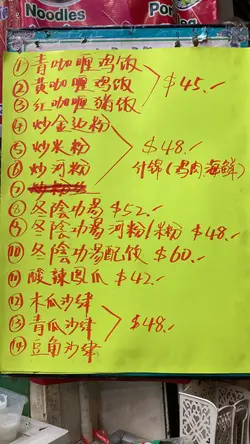 Noodles
① 青咖喱鸡饭
② 黄咖喱鸡饭 $45.-
③ 红咖喱鸡饭
④ 炒金边粉
⑤ 炒米粉 $48.-
⑥ 炒河粉 什锦(鸡肉海鲜)
⑦
⑧ 冬陰功湯 $52.-
⑨ 冬陰功湯河粉/米粉 $48.-
⑩ 冬陰功湯配饭 $60.-
⑪ 酸辣凤爪 $42.-
⑫ 木瓜沙律
⑬ 青瓜沙律 $48.-
⑭ 豆角沙律